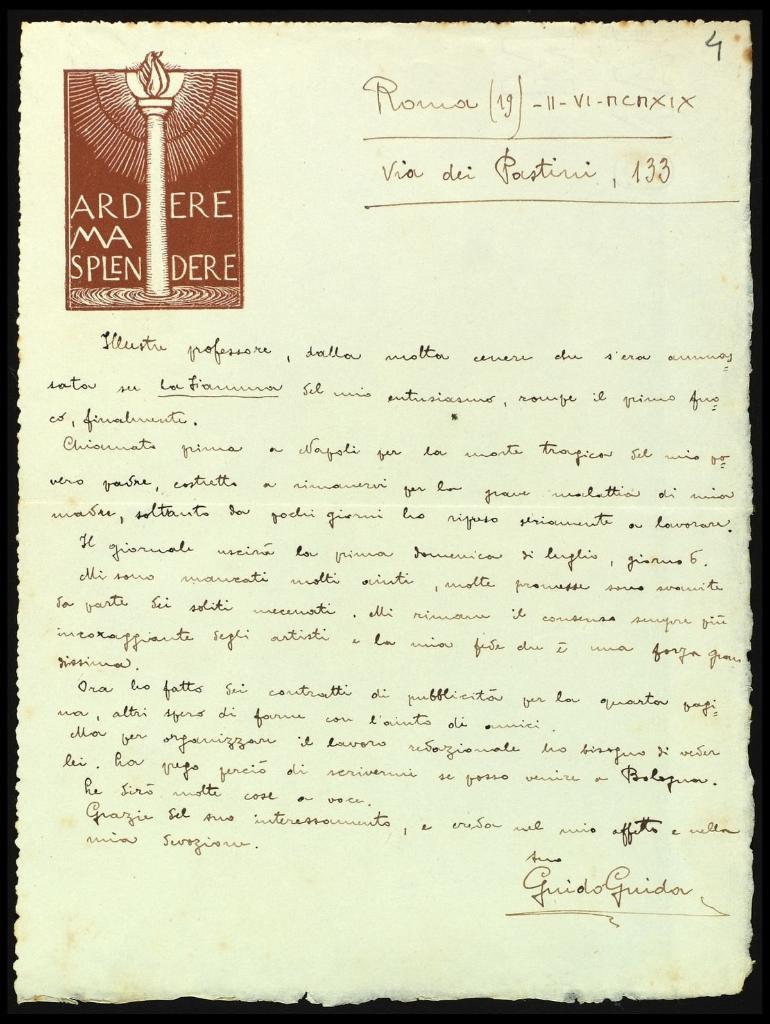 4
Roma (19) - II - VI - MCMXIX
Via dei Pastini, 133
ARDERE
MA
SPLENDERE
Illustre professore, dalla molta cenere che s'era ammas=
sata su la Fiamma del mio entusiasmo, rompe il primo fuo=
co, finalmente.
Chiamato prima a Napoli per la morte tragica del mio po=
vero padre, costretto a rimanervi per la grave malattia di mia
madre, soltanto da pochi giorni ho ripreso seriamente a lavorare.
Il giornale uscirà la prima domenica di luglio, giorno 6.
Mi sono mancati molti aiuti, molte promesse sono svanite
da parte dei soliti mecenati. Mi rimane il consenso sempre più
incoraggiante degli artisti e la mia fede che è una forza gran
dissima.
Ora ho fatto dei contratti di pubblicità per la quarta pagi=
na, altri spero di farne con l'aiuto di amici.
Ma per organizzare il lavoro redazionale ho bisogno di veder
lei. La prego perciò di scrivermi se posso venire a Bologna.
Le dirò molte cose a voce.
Grazie del suo interessamento, e creda nel mio affetto e nella
mia devozione.
suo
Guido Guida